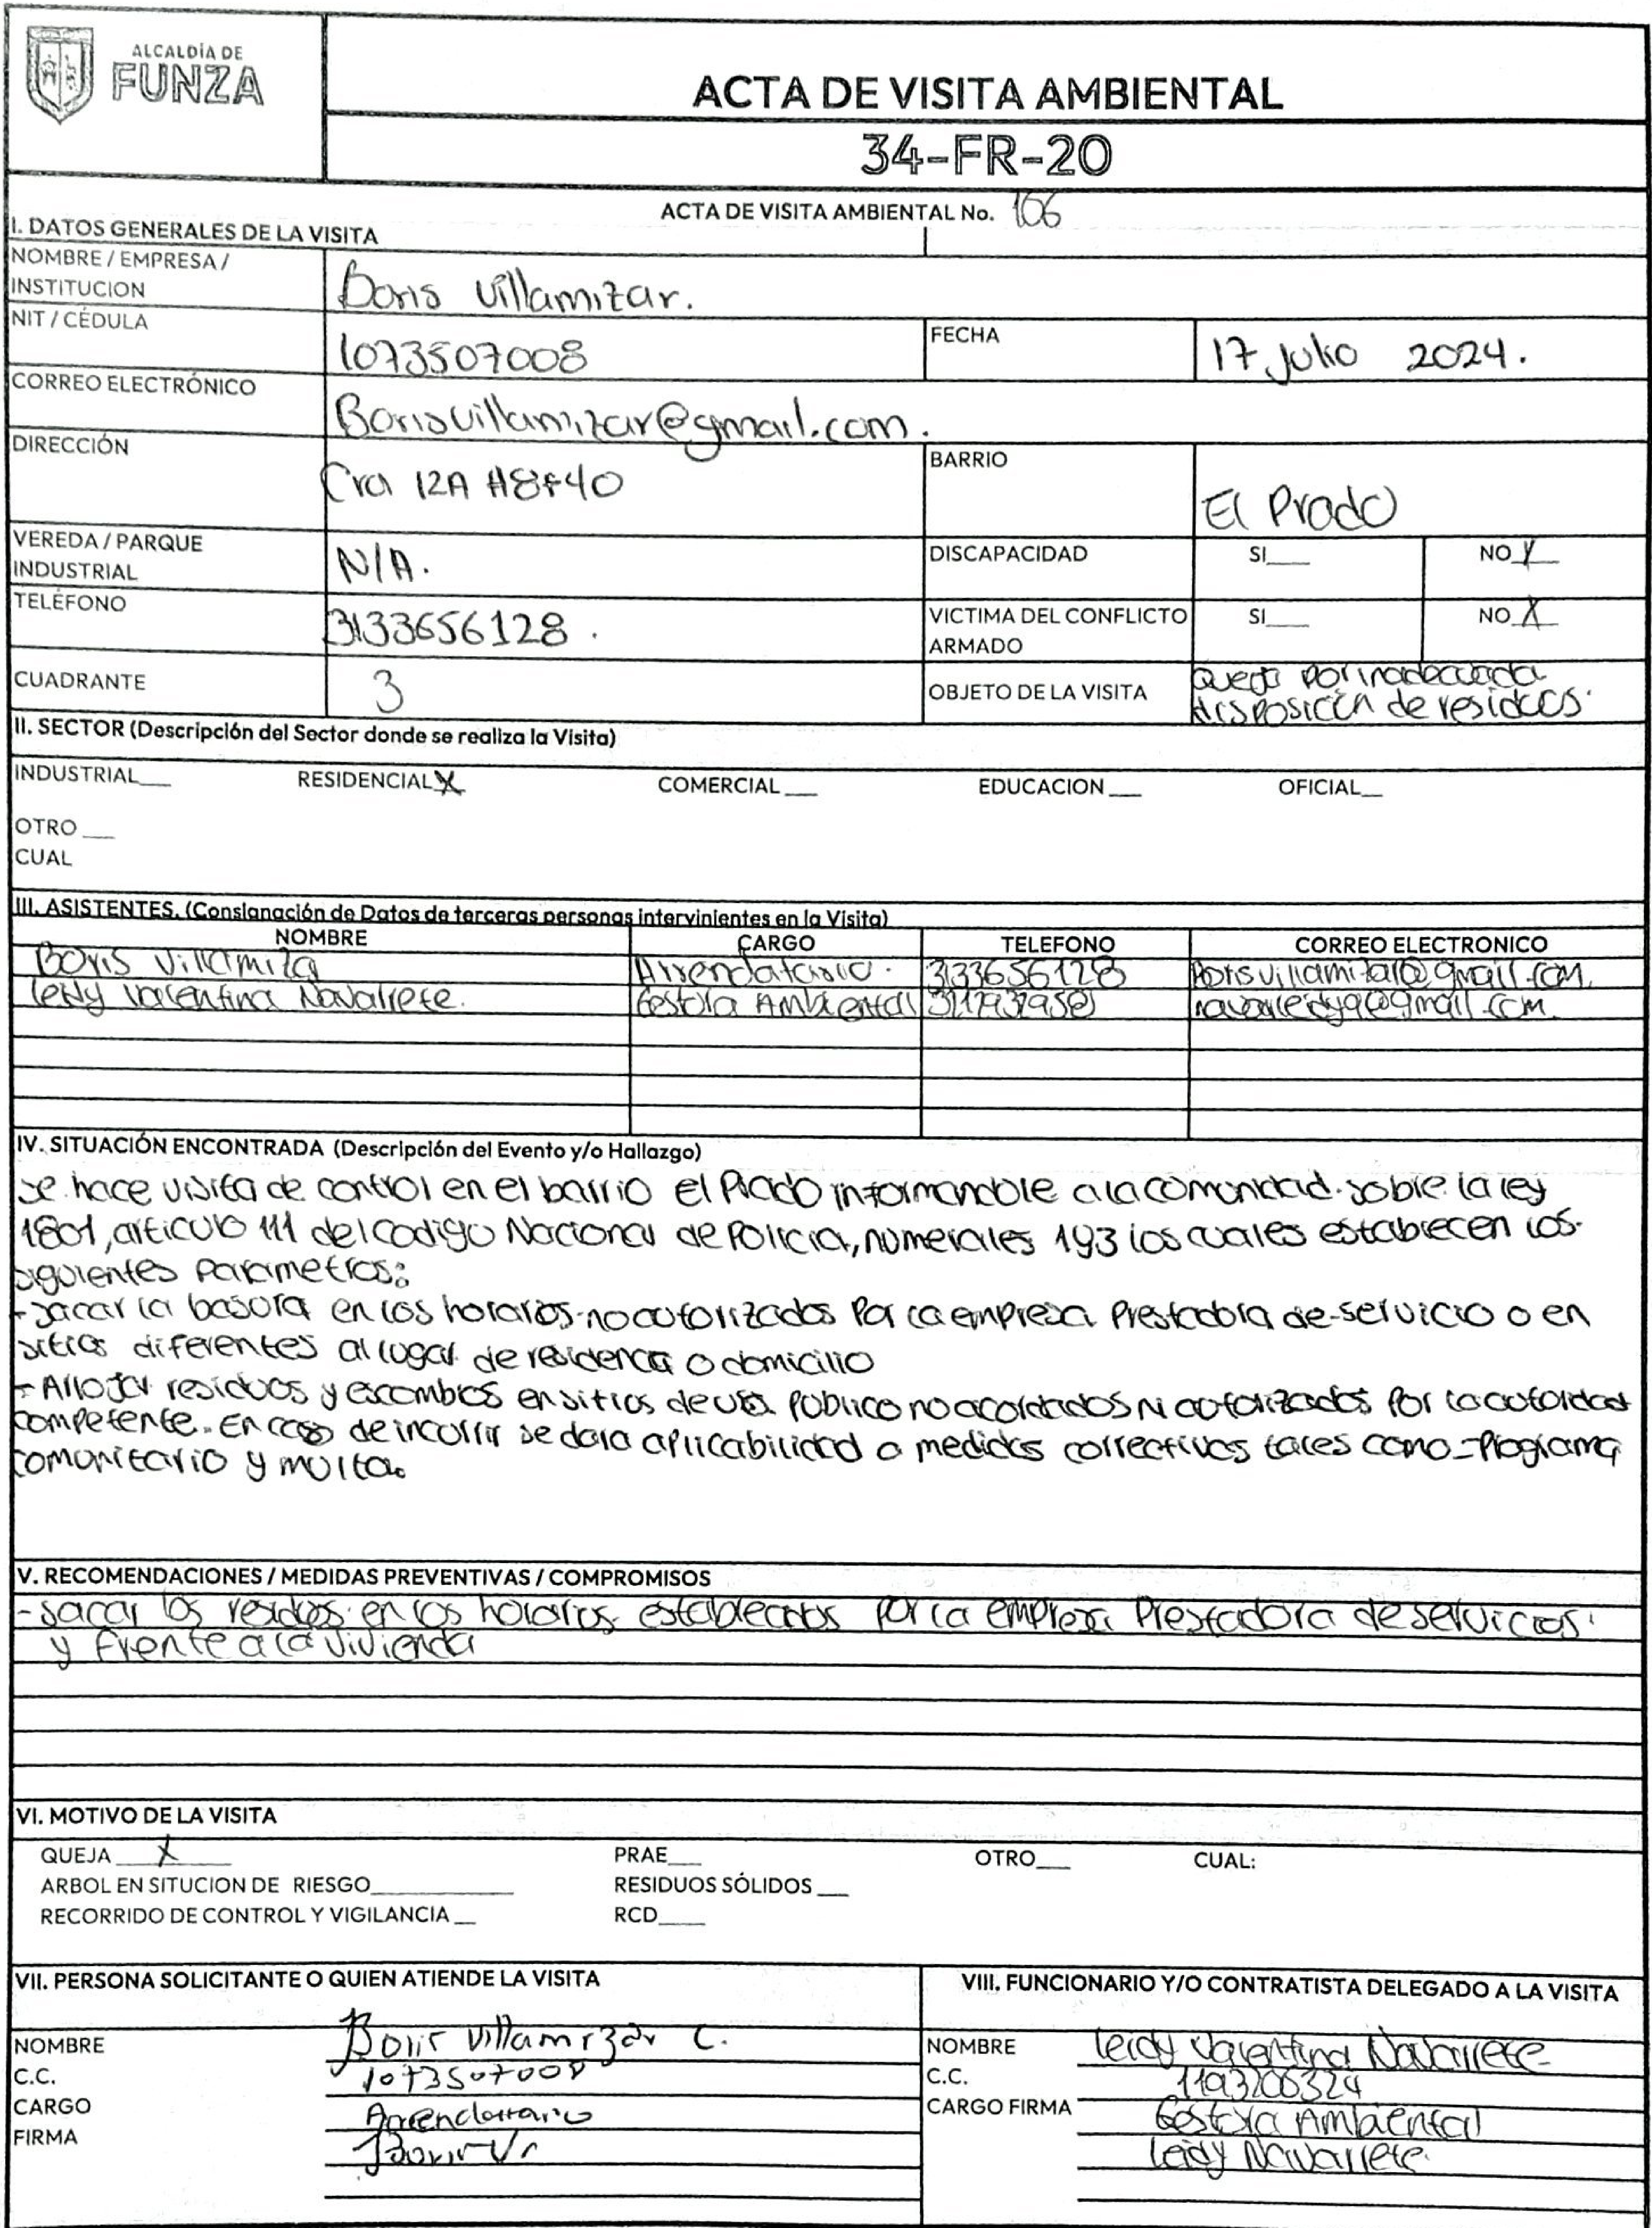 ALCALDÍA DE
FUNZA
ACTA DE VISITA AMBIENTAL
34-FR-20
ACTA DE VISITA AMBIENTAL No. 106
I. DATOS GENERALES DE LA VISITA
NOMBRE / EMPRESA / INSTITUCION Boris Villamizar.
NIT / CÉDULA 1073507008 FECHA 17 julio 2024.
CORREO ELECTRÓNICO Borisvillamizar@gmail.com.
DIRECCIÓN Cra 12A #8-40 BARRIO El Prado
VEREDA / PARQUE INDUSTRIAL N/A. DISCAPACIDAD SI___ NO X
TELÉFONO 3133656128. VICTIMA DEL CONFLICTO ARMADO SI___ NO X
CUADRANTE 3 OBJETO DE LA VISITA Queja por inadecuada
disposición de residuos.
II. SECTOR (Descripción del Sector donde se realiza la Visita)
INDUSTRIAL___ RESIDENCIAL X COMERCIAL___ EDUCACION___ OFICIAL__
OTRO___
CUAL
III. ASISTENTES. (Consignación de Datos de terceras personas intervinientes en la Visita)
NOMBRE CARGO TELEFONO CORREO ELECTRONICO
Boris Villamiza Arrendatario. 3133656128 Borisvillamizar@gmail.com.
Leidy Valentina Navarrete. Gestora Ambiental @gmail.com.
IV. SITUACIÓN ENCONTRADA (Descripción del Evento y/o Hallazgo)
se hace visita de control en el barrio el Prado informandole a la comunidad. sobre la ley
1801, articulo 111 del codigo Nacional de Policia, numerales 1y3 los cuales establecen los
siguientes parametros:
- sacar la basura en los horarios no autorizados Por la empresa Prestadora de servicio o en
sitios diferentes al lugar de residencia o domicilio
- Arrojar residuos y escombros en sitios de uso público no acordados ni autorizados Por la autoridad
competente. En caso de incurrir se dara aplicabilidad a medidas correctivas tales como - Programa
comunitario y multa.
V. RECOMENDACIONES / MEDIDAS PREVENTIVAS / COMPROMISOS
- sacar los residuos en los horarios establecidos por la empresa Prestadora de servicios
y frente a la vivienda
VI. MOTIVO DE LA VISITA
QUEJA X PRAE___ OTRO___ CUAL:
ARBOL EN SITUCION DE RIESGO___ RESIDUOS SÓLIDOS___
RECORRIDO DE CONTROL Y VIGILANCIA__ RCD___
VII. PERSONA SOLICITANTE O QUIEN ATIENDE LA VISITA VIII. FUNCIONARIO Y/O CONTRATISTA DELEGADO A LA VISITA
NOMBRE Boris Villamizar C. NOMBRE Leidy Valentina Navarrete
C.C. 1073507008 C.C. 1193206324
CARGO Arrendatario CARGO FIRMA Gestora Ambiental
FIRMA Boris V. Leidy Navarrete.